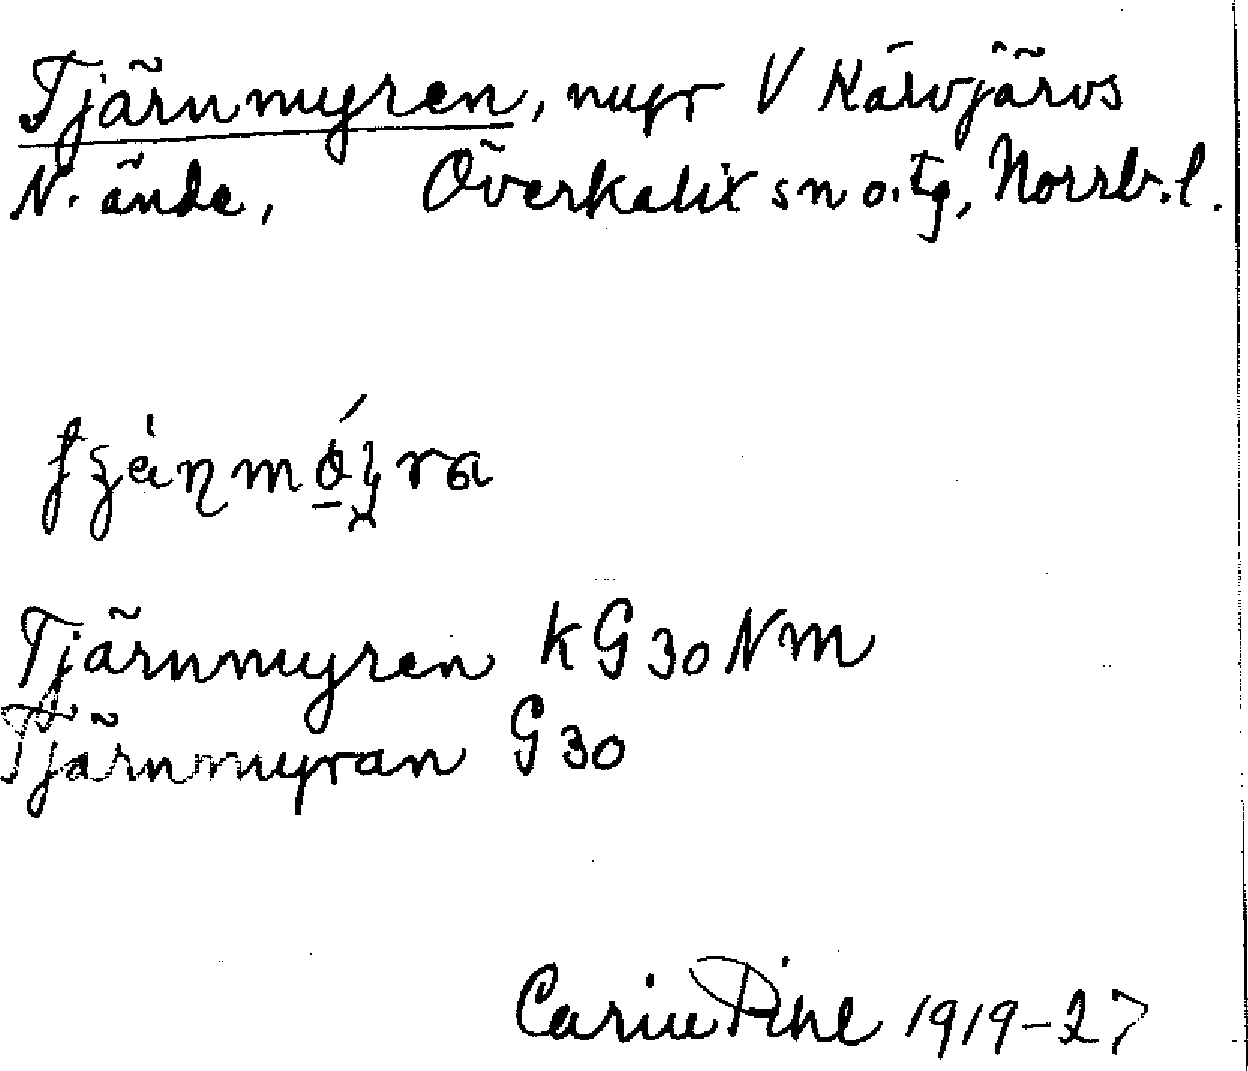 Tjärnmyren, myr V Kärvjärvs
N. ände, Överkalix sn o. tg, Norrb. l.
Tjärnmyren KG 30 NM
Tjärnmyran G 30
Carin Pihl 1919-27